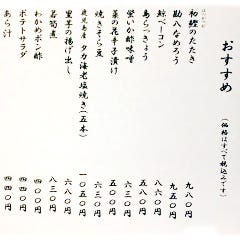 おすすめ
(価格はすべて税込みです)
初鰹のたたき 九八〇円
勘八なめろう 九五〇円
鯨ベーコン 八八〇円
島らっきょう 五八〇円
蛍いか酢味噌 六三〇円
菜の花辛子漬け 五〇〇円
焼きそら豆 六三〇円
鹿児島産 タカ海老塩焼き(五本) 一〇五〇円
里芋の揚げ出し 六八〇円
若筍煮 八三〇円
わかめポン酢 四〇〇円
ポテトサラダ 四四〇円
あら汁 四〇〇円